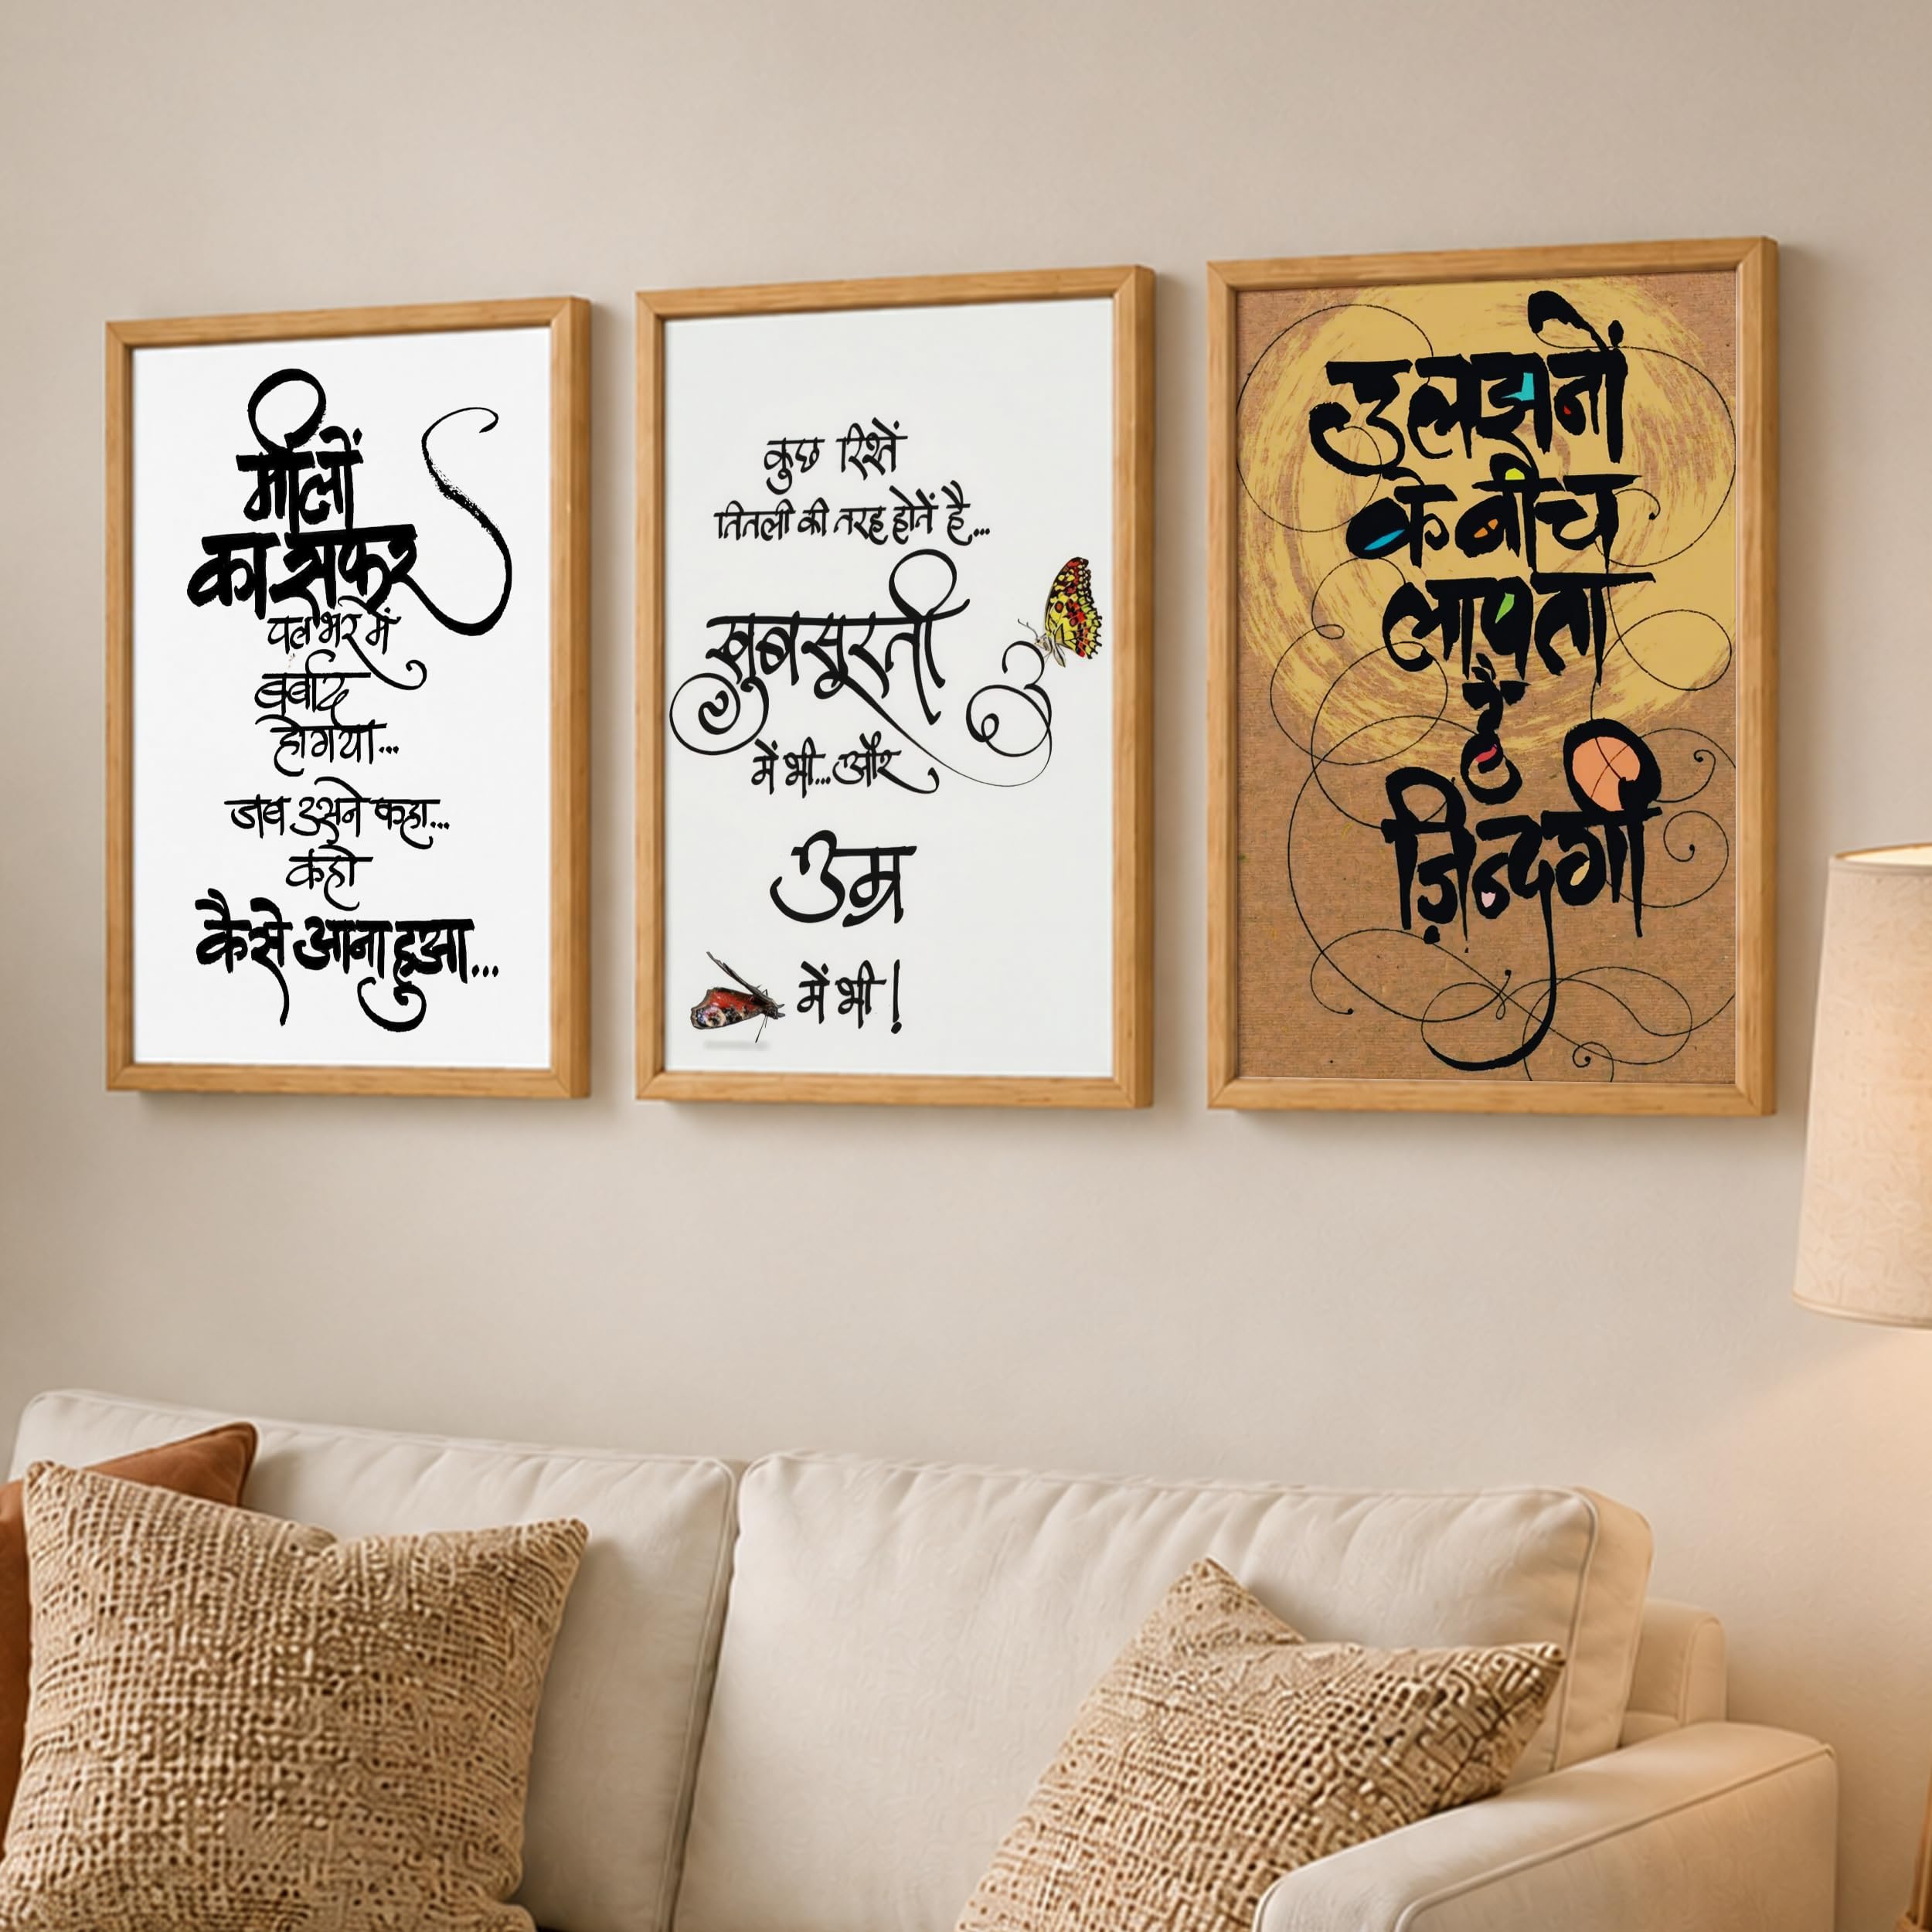 मीलों
का सफर
पल भर में
बर्बाद
हो गया...
जब उसने कहा...
कहो
कैसे आना हुआ...
कुछ रिश्तें
तितली की तरह होतें है...
खुबसूरती
में भी... और
उम्र
में भी!
उलझनों
के बीच
लापता
है
ज़िन्दगी